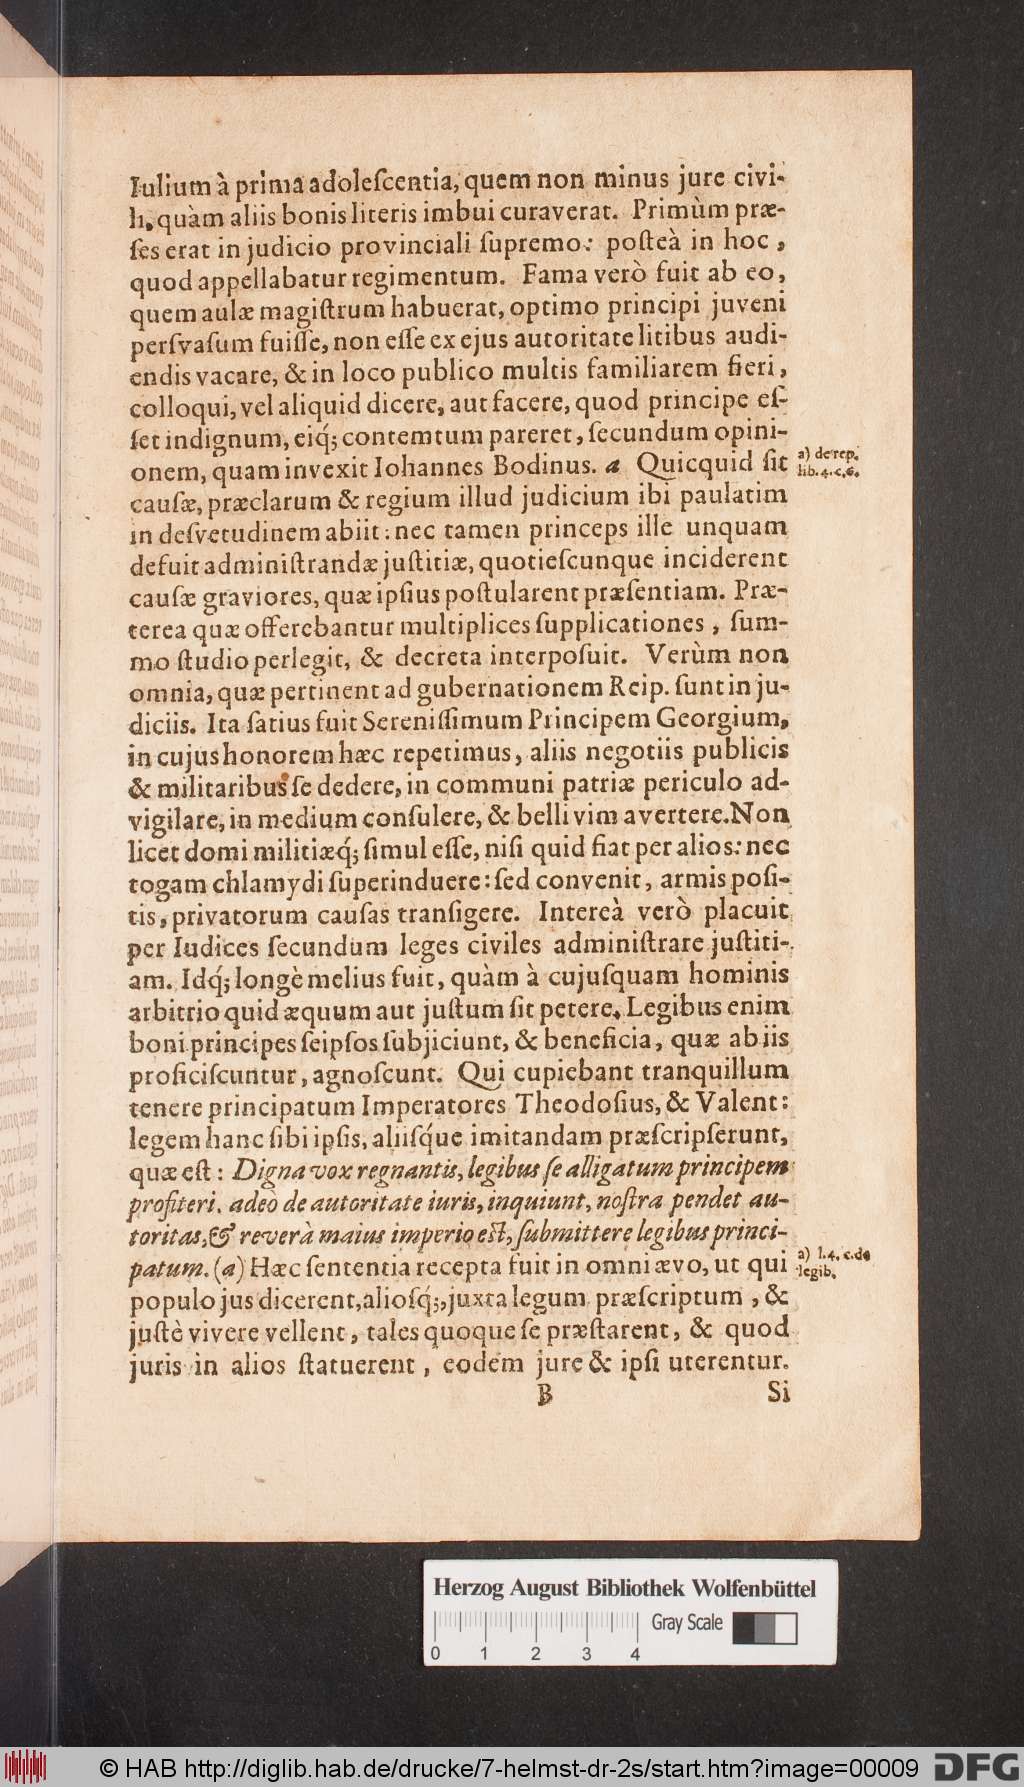 Iulium à prima adoleſcentia, quem non minus jure civi-
li, quàm aliis bonis literis imbui curaverat. Primùm præ-
ſes erat in judicio provinciali ſupremo: poſteà in hoc,
quod appellabatur regimentum. Fama verò fuit ab eo,
quem aulæ magiſtrum habuerat, optimo principi juveni
perſvaſum fuiſſe, non eſſe ex ejus autoritate litibus audi-
endis vacare, & in loco publico multis familiarem fieri,
colloqui, vel aliquid dicere, aut facere, quod principe eſ-
ſet indignum, eiq́; contemtum pareret, ſecundum opini-
onem, quam invexit Iohannes Bodinus. a Quicquid ſit
a) de rep.
lib. 4. c. 6.
cauſæ, præclarum & regium illud judicium ibi paulatim
in deſvetudinem abiit: nec tamen princeps ille unquam
defuit adminiſtrandæ juſtitiæ, quotieſcunque inciderent
cauſæ graviores, quæ ipſius poſtularent præſentiam. Præ-
terea quæ offerebantur multiplices ſupplicationes, ſum-
mo ſtudio perlegit, & decreta interpoſuit. Verùm non
omnia, quæ pertinent ad gubernationem Reip. ſunt in ju-
diciis. Ita ſatius fuit Sereniſſimum Principem Georgium,
in cujus honorem hæc repetimus, aliis negotiis publicis
& militaribus ſe dedere, in communi patriæ periculo ad-
vigilare, in medium conſulere, & belli vim avertere. Non
licet domi militiæq́; ſimul eſſe, niſi quid fiat per alios: nec
togam chlamydi ſuperinduere: ſed convenit, armis poſi-
tis, privatorum cauſas tranſigere. Intereà verò placuit
per Iudices ſecundum leges civiles adminiſtrare juſtiti-
am. Idq́; longè melius fuit, quàm à cujuſquam hominis
arbitrio quid æquum aut juſtum ſit petere. Legibus enim
boni principes ſeipſos ſubjiciunt, & beneficia, quæ ab iis
proficiſcuntur, agnoſcunt. Qui cupiebant tranquillum
tenere principatum Imperatores Theodoſius, & Valent:
legem hanc ſibi ipſis, aliiſq́ue imitandam præſcripſerunt,
quæ eſt: Digna vox regnantis, legibus ſe alligatum principem
profiteri. adeò de autoritate iuris, inquiunt, noſtra pendet au-
toritas, & reverà maius imperio eſt, ſubmittere legibus princi-
patum. (a) Hæc ſententia recepta fuit in omni ævo, ut qui
a) l. 4. c. de
legib.
populo jus dicerent, alioſq́;, juxta legum præſcriptum, &
juſtè vivere vellent, tales quoque ſe præſtarent, & quod
juris in alios ſtatuerent, eodem jure & ipſi uterentur.
B
Si
Herzog August Bibliothek Wolfenbüttel
Gray Scale
0 1 2 3 4
© HAB http://diglib.hab.de/drucke/7-helmst-dr-2s/start.htm?image=00009
DFG